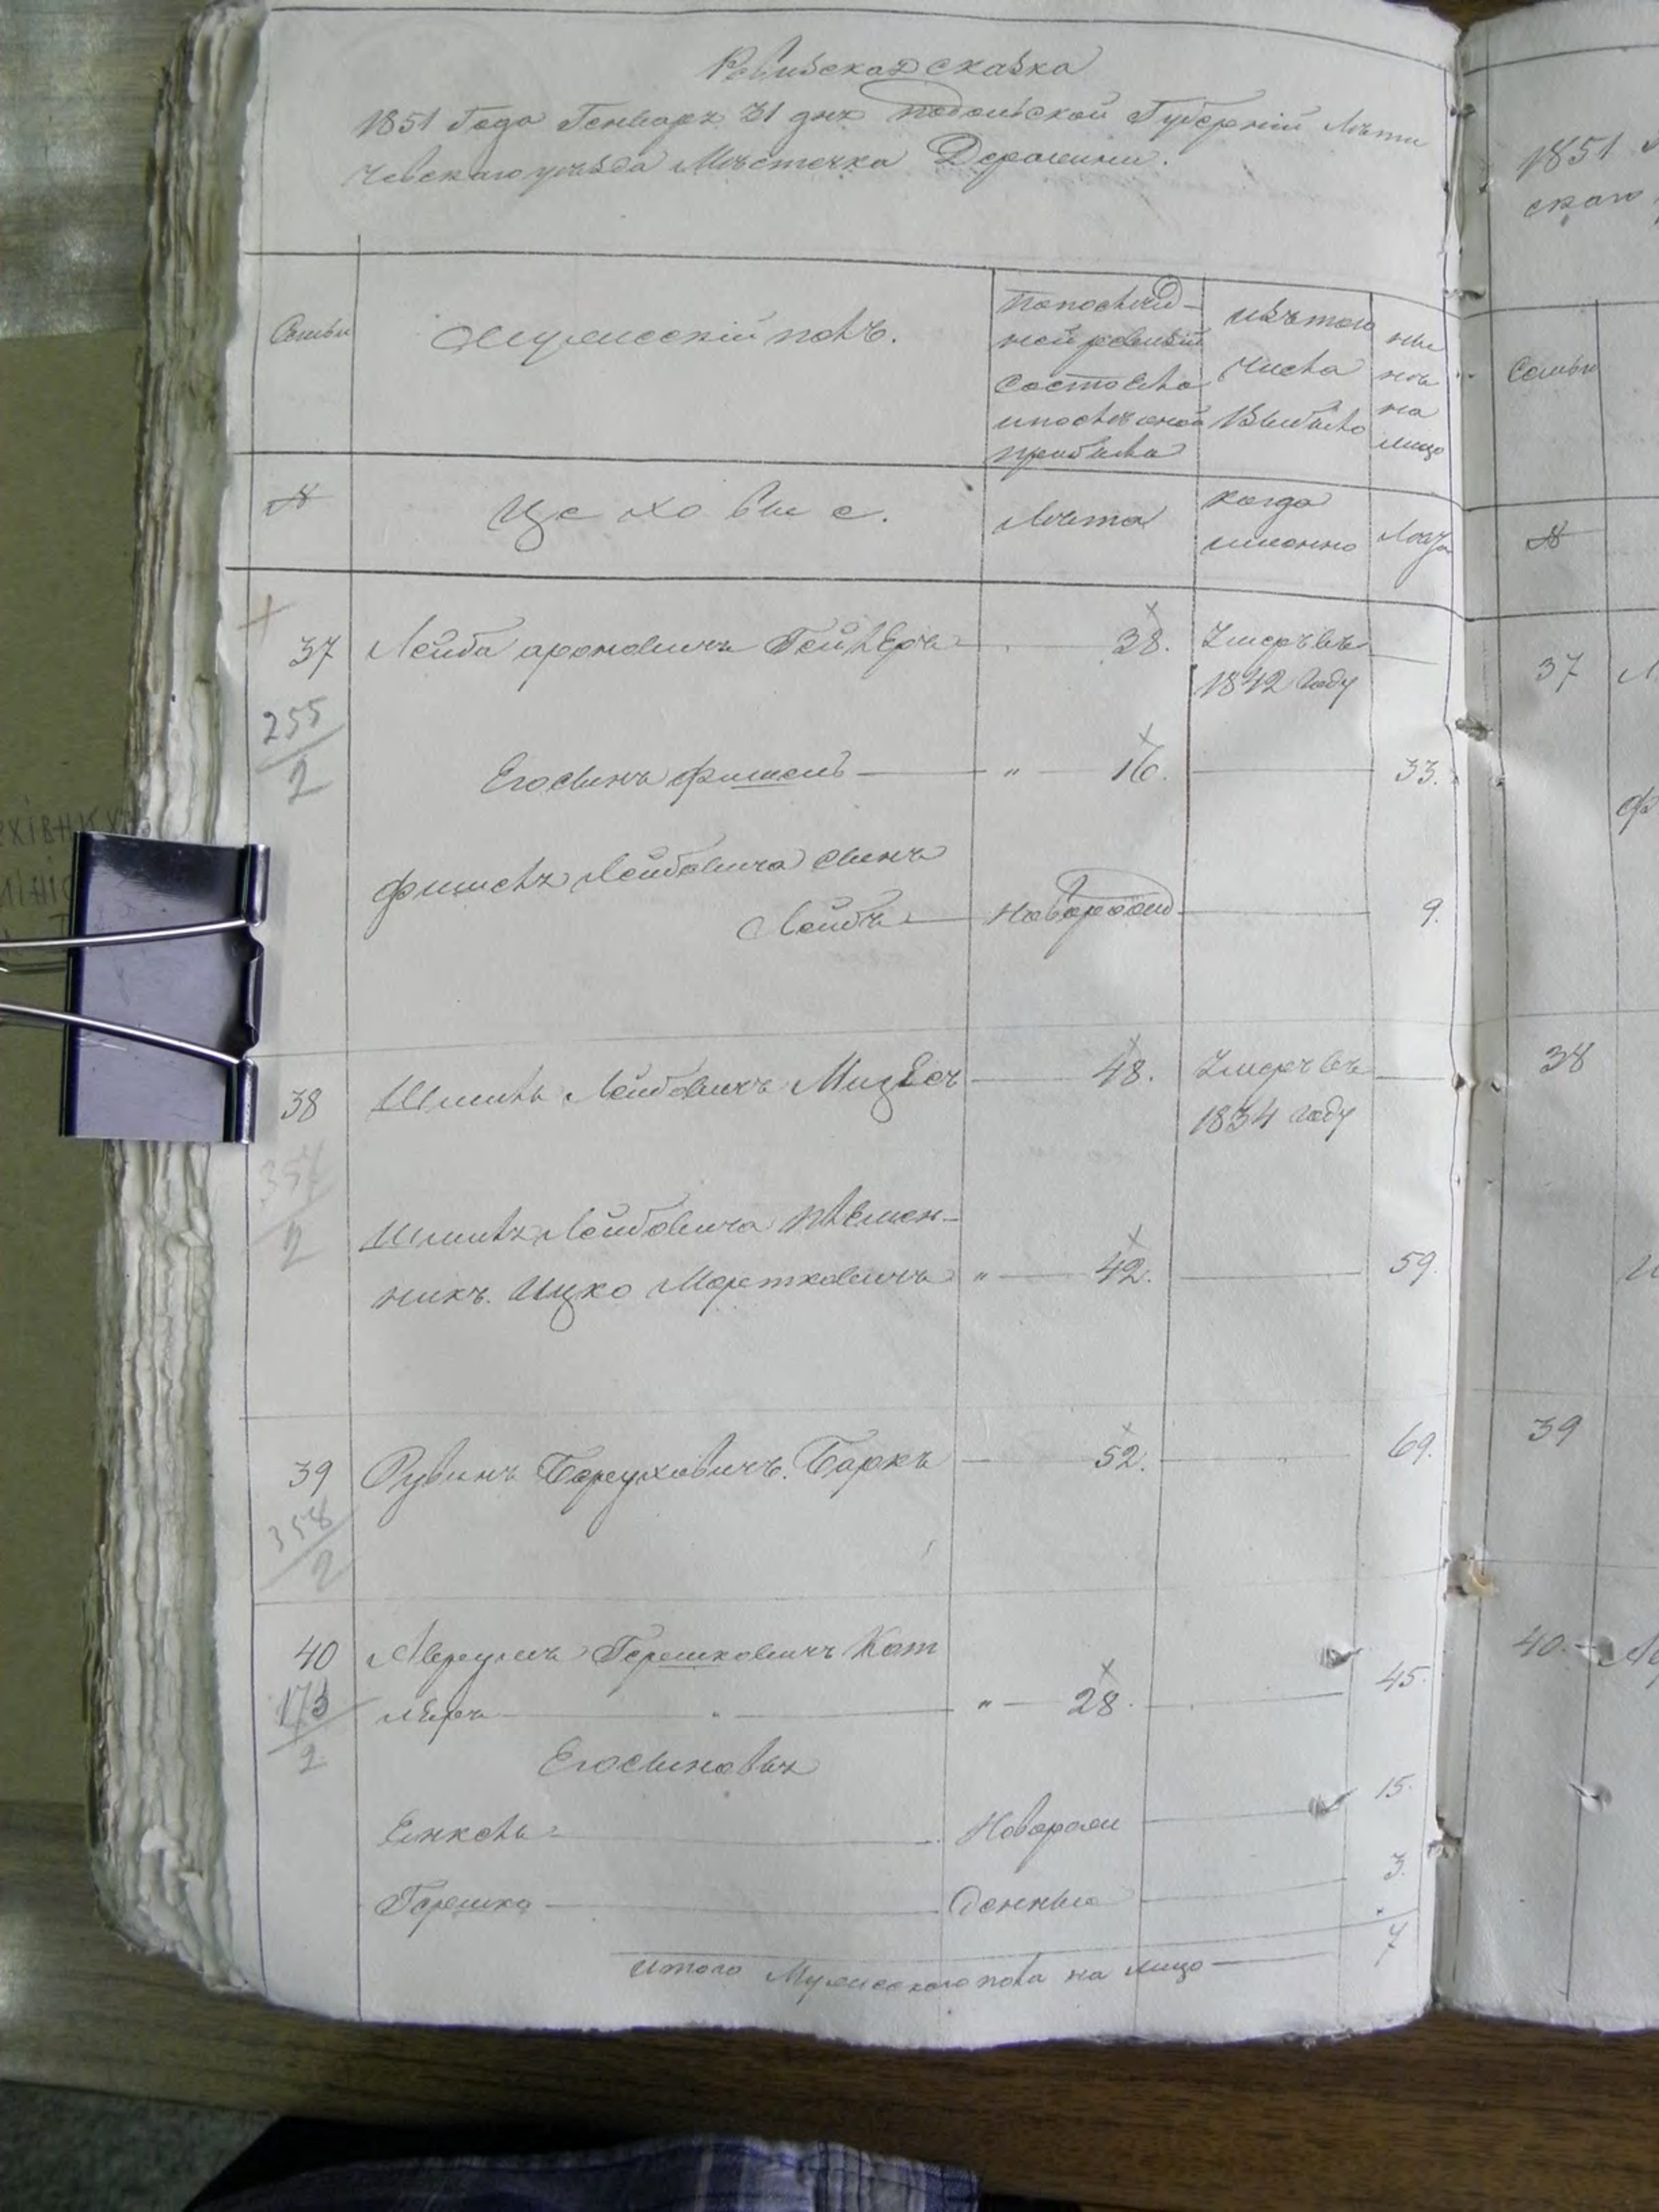 Ревизская сказка
1851 Года Генваря 31 дня Подольской Губерніи Лѣти
чевскаго уѣзда Мѣстечка Деражни.
Семьи
Мужескій полъ.
По послѣд-
ней ревизіи
состояло
и послѣ оной
прибыло
изъ того
числа
выбыло
ны
нѣ
на
лицо
№
Цеховые.
Лѣта
когда
именно
Лѣта
37 Лейба Ароновичъ 38. Умеръ въ
1842 году
255
2
Его сынъ Фишель " 16. 33.
Фишеля Лейбовича сынъ
Лейба Новорожд 9.
38 Шмиль Лейбовичъ 48. Умеръ въ
1834 году
357
2
Шмиля Лейбовича племен-
никъ Ицко Мортковичъ " 42. 59.
39 Рувинъ Беруховичъ Баркъ 52. 69.
358
2
40 Авруумъ Гершковичъ Кот
ляръ " " 28. 45.
173
2
Его сыновья
Янкель Новорож 15.
Гершко денные 3.
итого Мужескаго пола на лицо 7
1851
скаго
Семьи
№
37
38
39
40